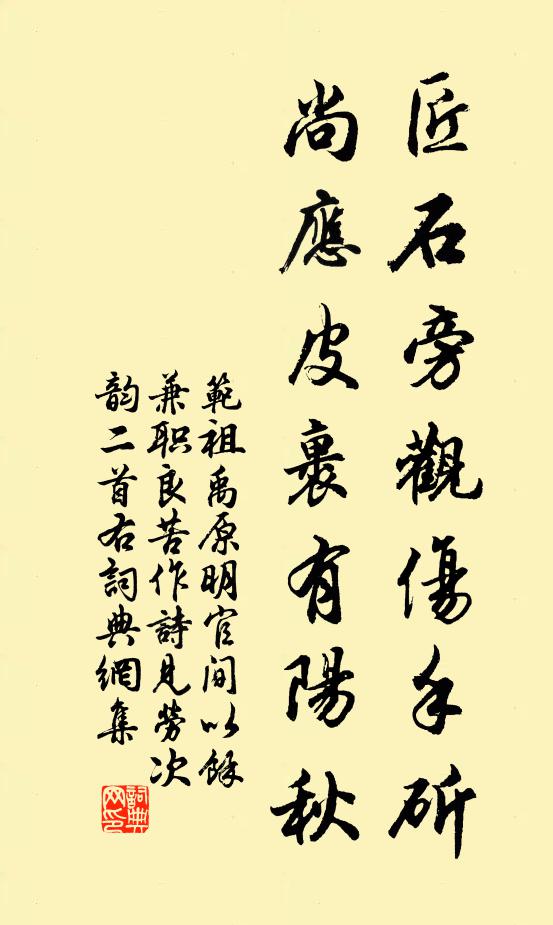 匠石旁觀傷手斫
尚應皮裹有陽秋
範祖禹原明官閒以餘
兼职良苦作詩見勞次
韵二首右詞典網集
詞典网印